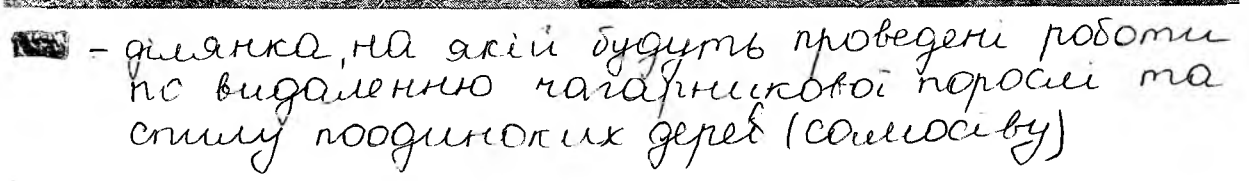 - ділянка, на якій будуть проведені роботи
по видаленню чагарникової порослі та
спилу поодиноких дерев (самосіву)